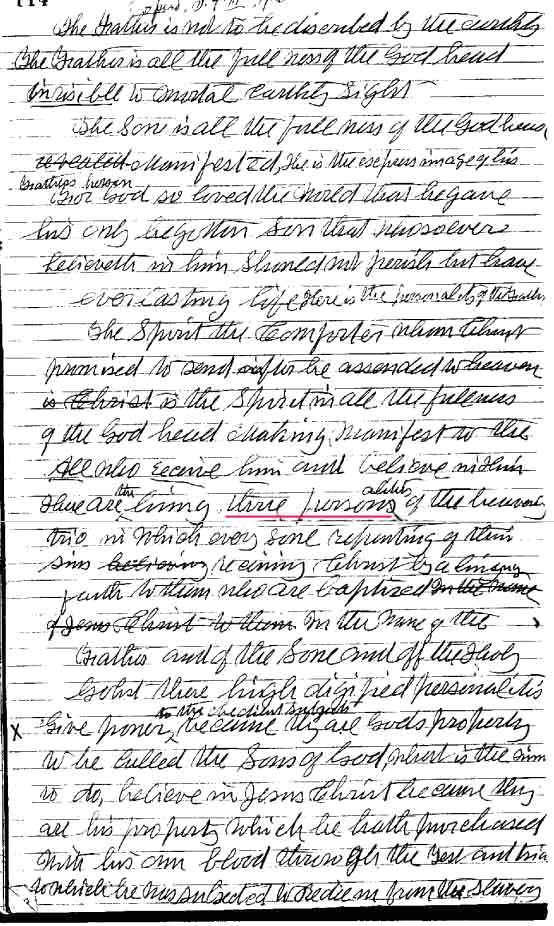 114
The Father is not to be discribed by the earthly
The Father is all the full ness of the God head
invisible to mortal earthly sight
The Sone is all the full ness of the God head
revealed Manifested, He is the express image of his
Fathers person
For God so loved the World that he gave
his only begotton Son that whosoever
believeth in him Should not perish but have
everlasting life Here is the personality of the Father
The Spirit the Comforter whom Christ
promised to send after he assended to heaven
is Christ is the Spirit in all the fullness
of the God head Making Manifest to the
All who receive him and believe in Him
There are the living three personalities of the heavenly
trio in which every soul repenting of their
sins believing receiving Christ by a living
faith to them who are baptized in the name
of Jesus Christ to them In the Name of the
Father and of the Sone and of the Holy
Gohst these high digified personalitis
X Give power to the obedient subjects because they are Gods property
to be called the Sons of God, what is the sin
to do, believe in Jesus Christ because they
are his property which he hath purchased
With his own blood through the Test and tria
to which he was to redeem from the slavery